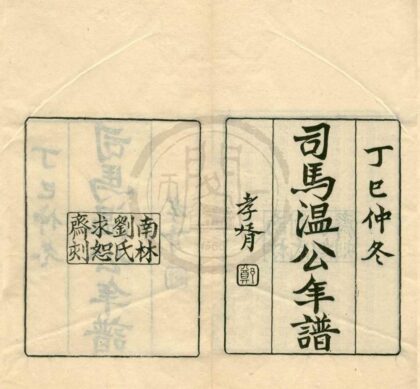 丁巳仲冬
司馬温公年譜
孝胥
鄭
南林
劉氏
求恕
齋刻